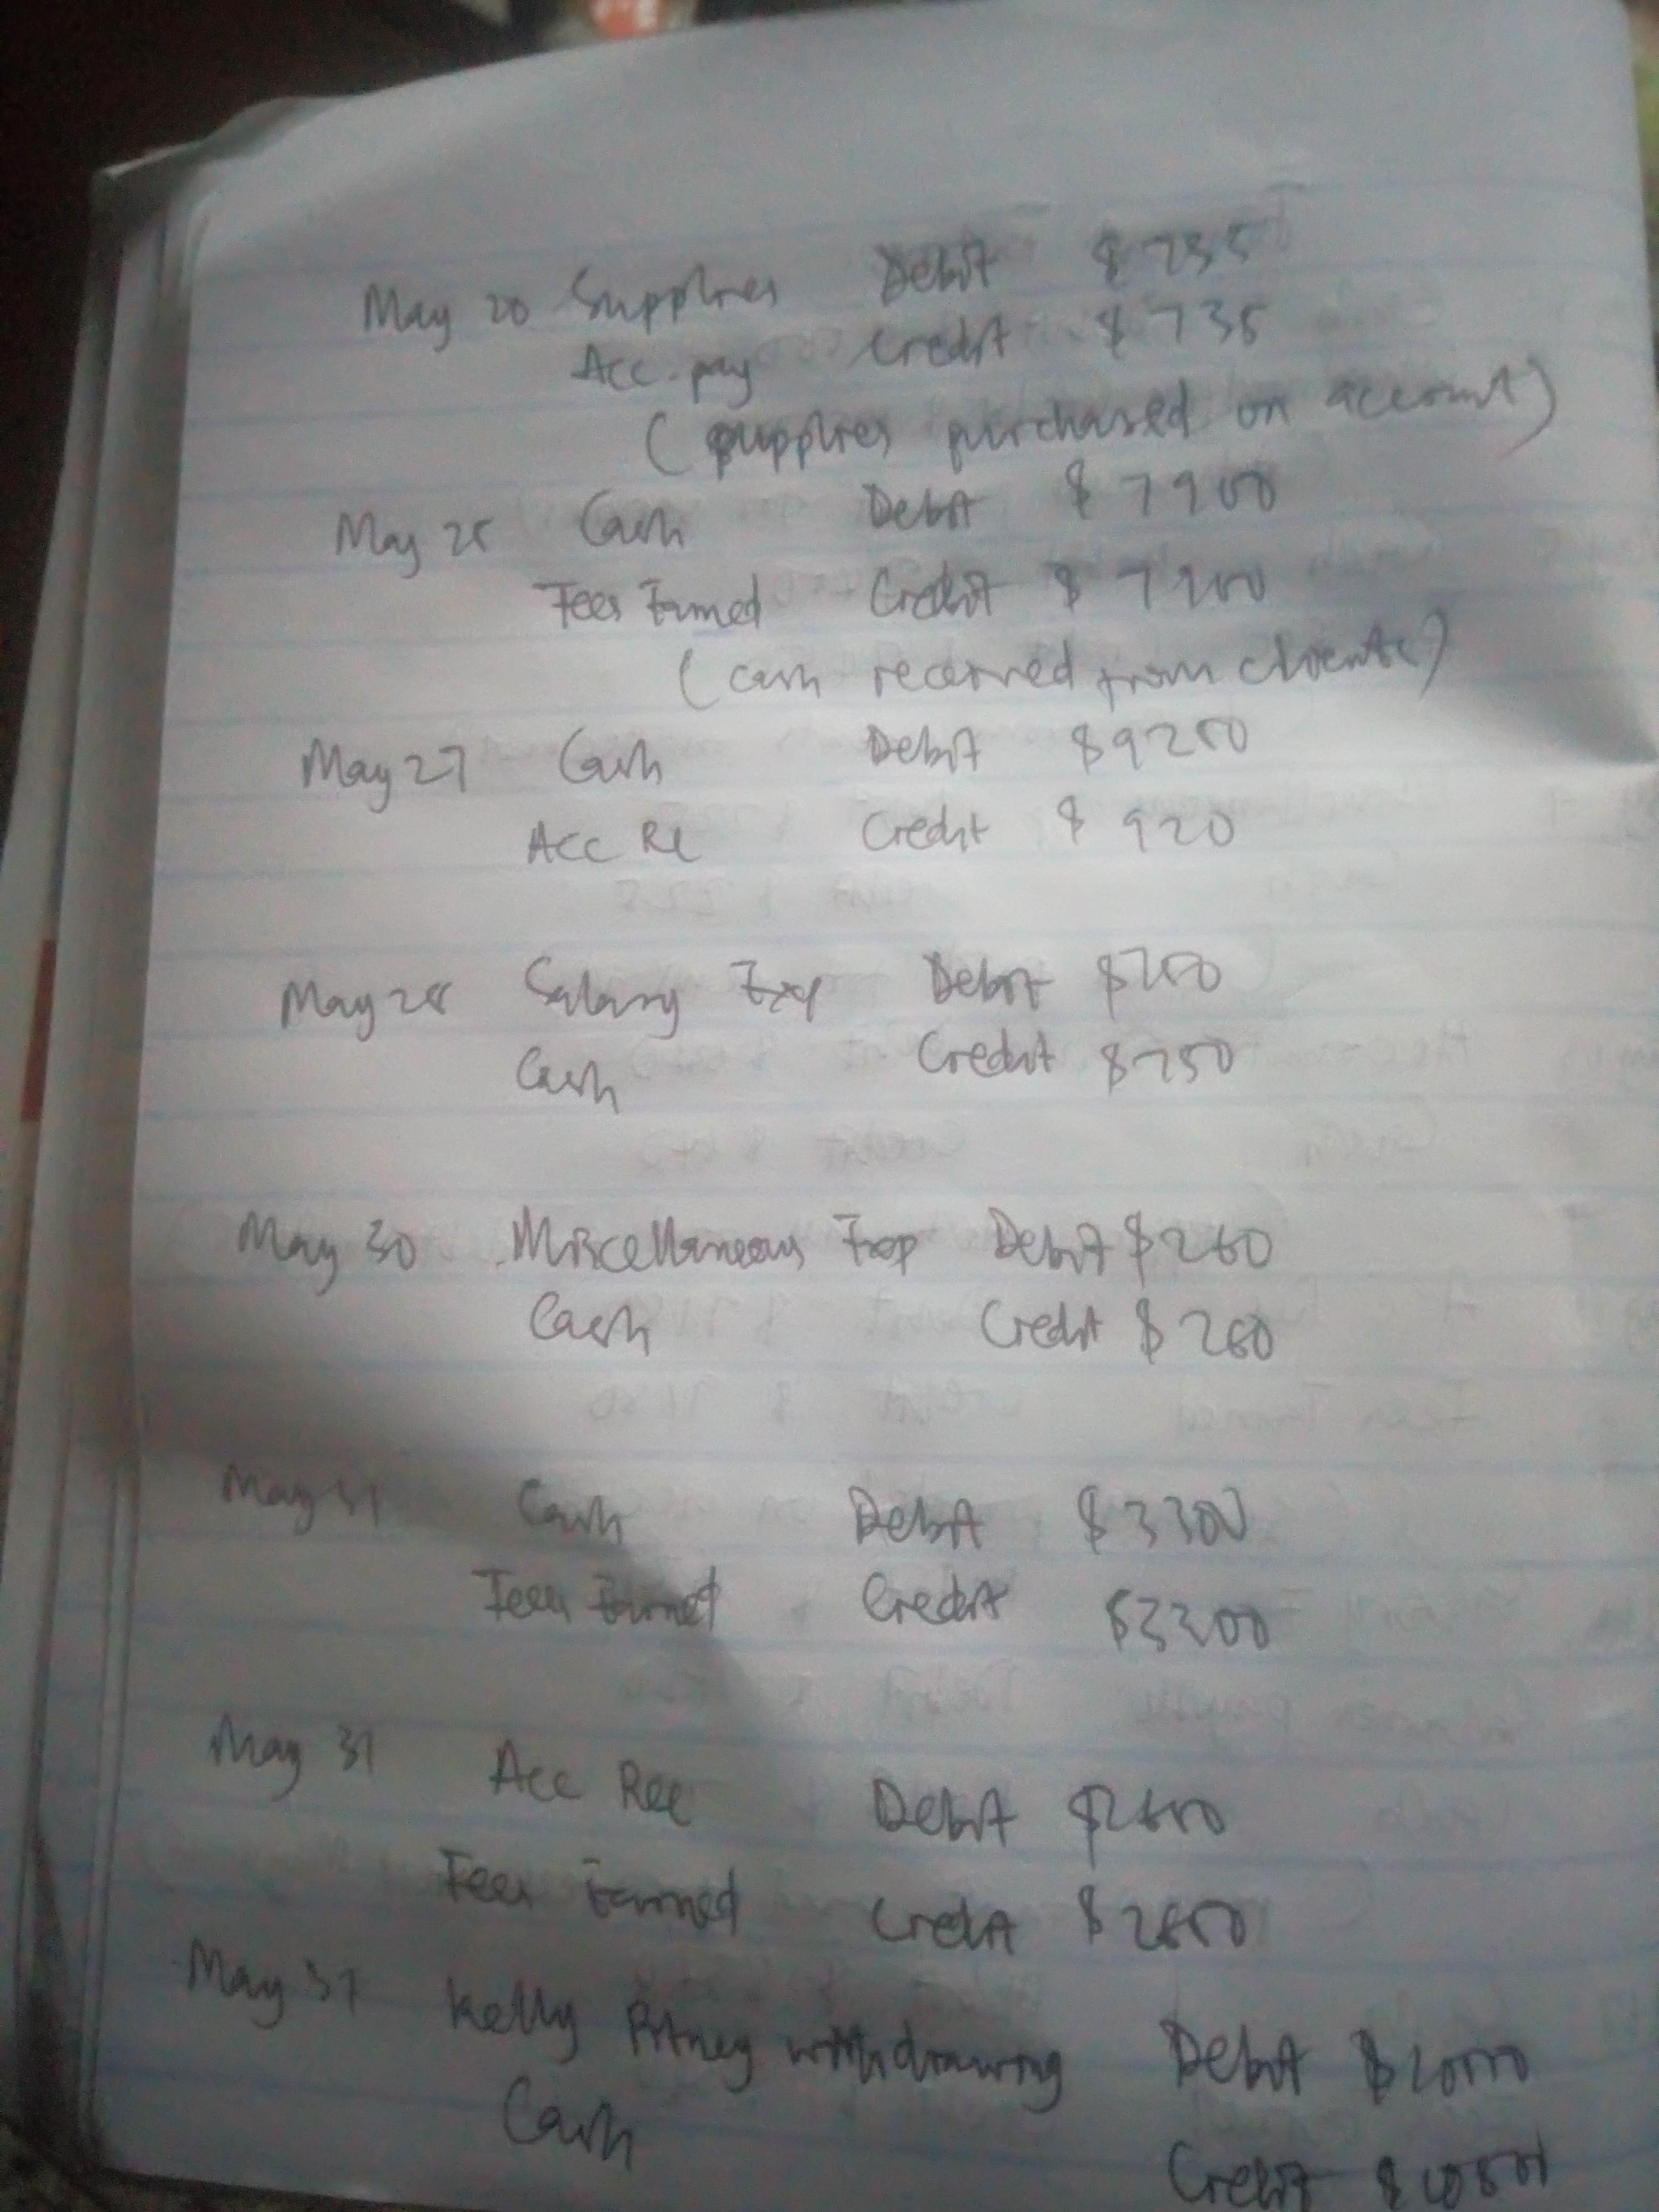 May 20 Supplies Debit $ 735
Acc. pay Credit $ 735
(supplies purchased on account)
May 25 Cash Debit $ 7900
Fees Earned Credit $ 7900
(cash received from clients)
May 27 Cash Debit $
Acc Re Credit $ 920
May 28 Salary Exp Debit $750
Cash Credit $750
May 30 Miscellaneous Exp Debit $260
Cash Credit $260
May 31 Cash Debit $3300
Fees Earned Credit $3300
May 31 Acc Rec Debit
Fees Earned Credit
May 31 Kelly Pitney withdrawing Debit
Cash Credit